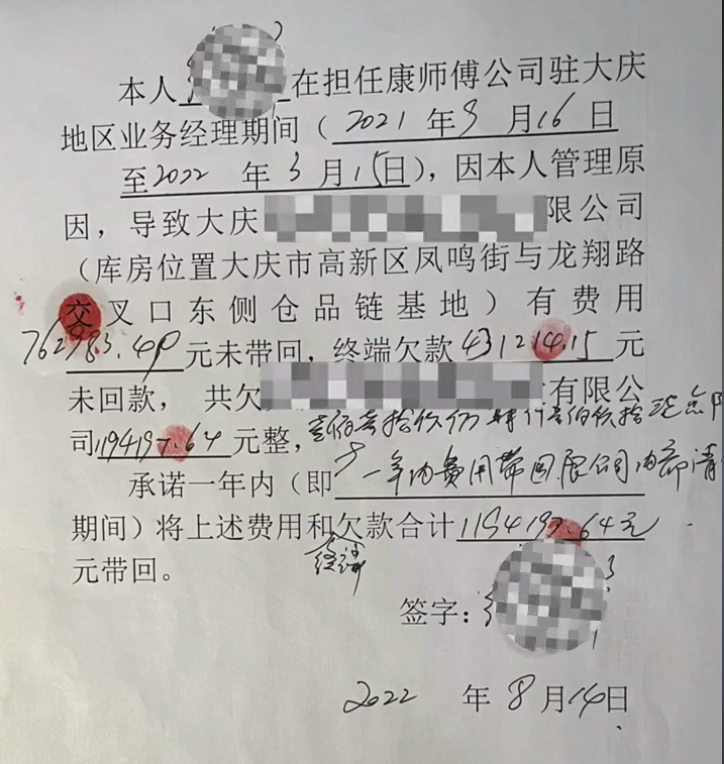 本人 在担任康师傅公司驻大庆
地区业务经理期间（2021年9月16日
至2022年3月15日），因本人管理原
因，导致大庆 限公司
（库房位置大庆市高新区凤鸣街与龙翔路
交叉口东侧仓品链基地）有费用
762983.49元未带回，终端欠款431214.15元
未回款，共欠 有限公
司1194197.64元整，
承诺一年内（即 一年内费用带回
期间）将上述费用和欠款合计1194197.64元
元带回。
签字：
2022年8月14日